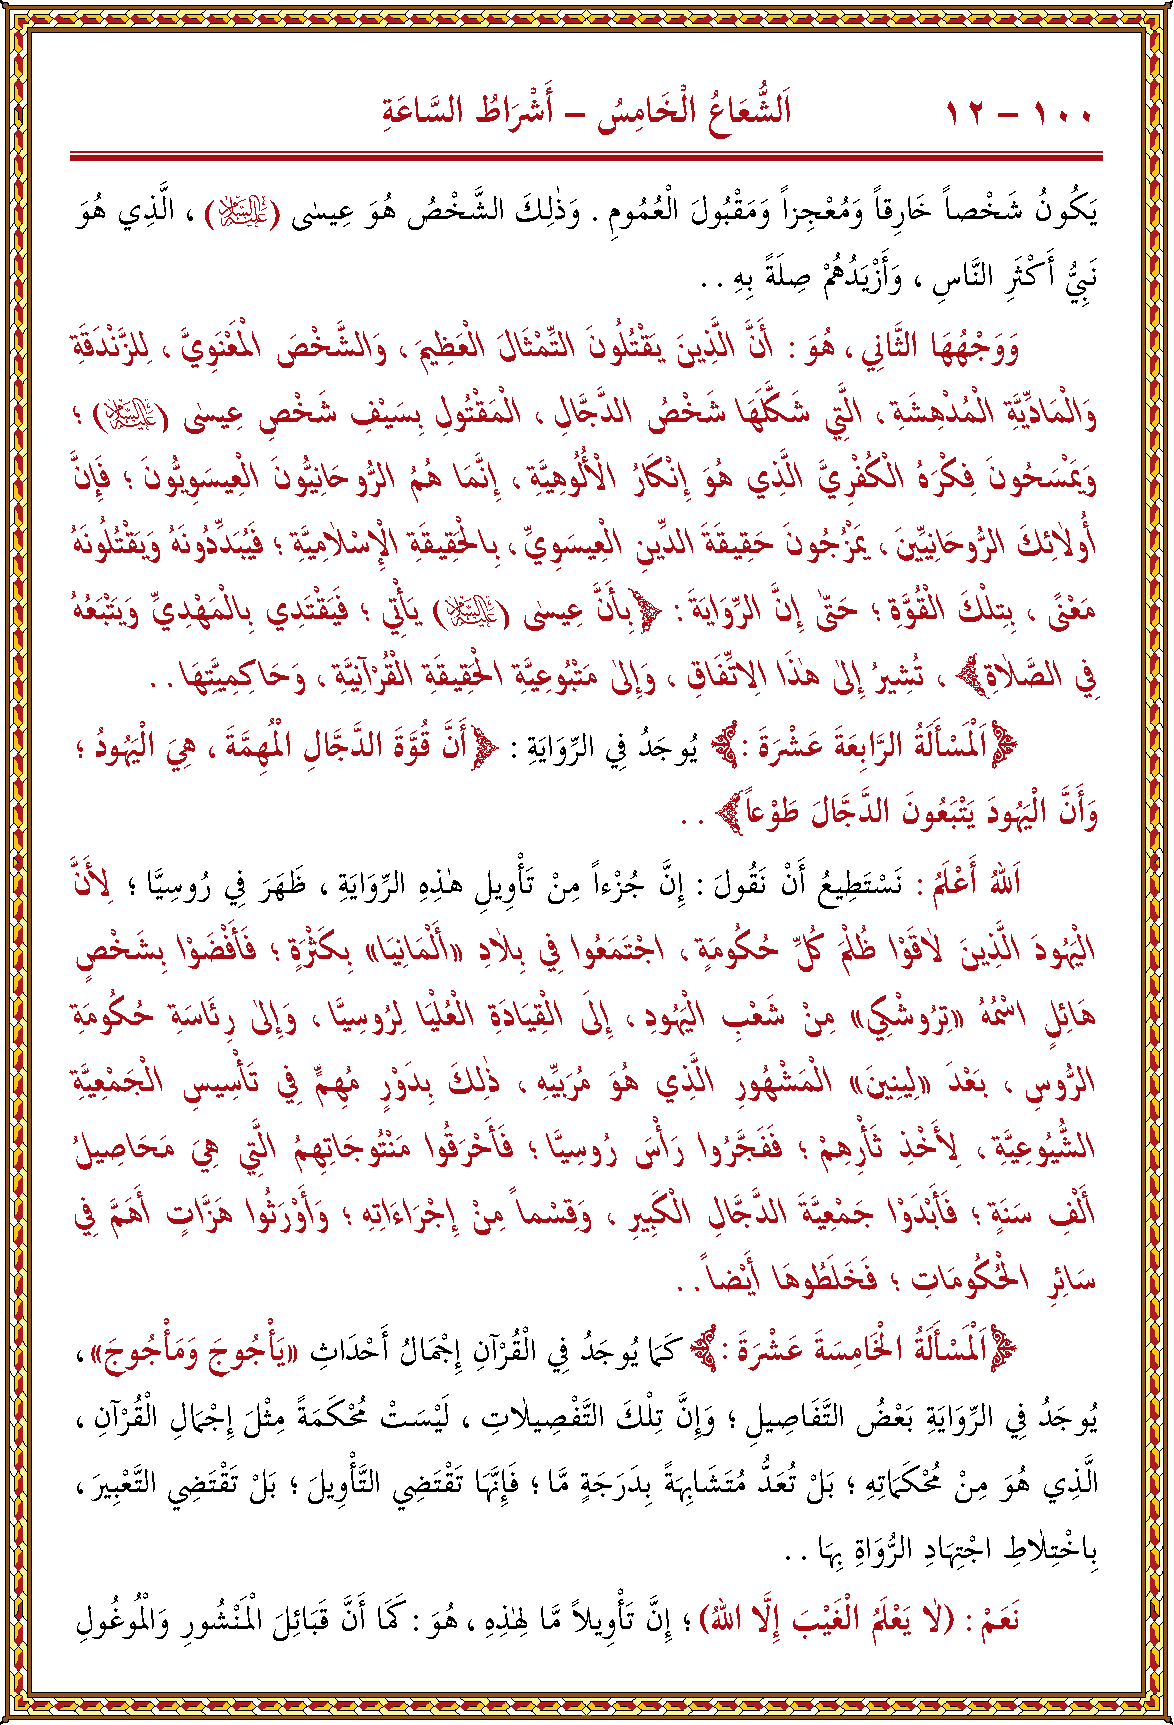 ١٠٠ – ١٢ اَلشُّعَاعُ الْخَامِسُ – أَشْرَاطُ السَّاعَةِ
يَكُونُ شَخْصاً خَارِقاً وَمُعْجِزاً وَمَقْبُولَ الْعُمُومِ . وَذٰلِكَ الشَّخْصُ هُوَ عِيسٰى (عَلَيْهِ السَّلَامُ) ، الَّذِي هُوَ
نَبِيُّ أَكْثَرِ النَّاسِ ، وَأَزْيَدُهُمْ صِلَةً بِهِ . .
وَوَجْهُهَا الثَّانِي ، هُوَ : أَنَّ الَّذِينَ يَقْتُلُونَ التِّمْثَالَ الْعَظِيمَ ، وَالشَّخْصَ الْمَعْنَوِيَّ ، لِلزَّنْدَقَةِ
وَالْمَادِّيَّةِ الْمُدْهِشَةِ ، الَّتِي شَكَّلَهَا شَخْصُ الدَّجَّالِ ، الْمَقْتُولِ بِسَيْفِ شَخْصِ عِيسٰى (عَلَيْهِ السَّلَامُ) ؛
وَيَمْسَحُونَ فِكْرَهُ الْكُفْرِيَّ الَّذِي هُوَ إِنْكَارُ الْأُلُوهِيَّةِ ، إِنَّمَا هُمُ الرُّوحَانِيُّونَ الْعِيسَوِيُّونَ ؛ فَإِنَّ
أُولٰائِكَ الرُّوحَانِيِّينَ ، يَمْزُجُونَ حَقِيقَةَ الدِّينِ الْعِيسَوِيِّ ، بِالْحَقِيقَةِ الْإِسْلاٰمِيَّةِ ؛ فَيُبَدِّدُونَهُ وَيَقْتُلُونَهُ
مَعْنًى ، بِتِلْكَ الْقُوَّةِ ؛ حَتّٰى إِنَّ الرِّوَايَةَ : ﴿بِأَنَّ عِيسٰى (عَلَيْهِ السَّلَامُ) يَأْتِي ؛ فَيَقْتَدِي بِالْمَهْدِيِّ وَيَتْبَعُهُ
فِي الصَّلاٰةِ﴾ ، تُشِيرُ إِلىٰ هٰذَا الاِتِّفَاقِ ، وَإِلىٰ مَتْبُوعِيَّةِ الْحَقِيقَةِ الْقُرْآنِيَّةِ ، وَحَاكِمِيَّتِهَا . .
﴿اَلْمَسْأَلَةُ الرَّابِعَةَ عَشْرَةَ :﴾ يُوجَدُ فِي الرِّوَايَةِ : ﴿أَنَّ قُوَّةَ الدَّجَّالِ الْمُهِمَّةَ ، هِيَ الْيَهُودُ ؛
وَأَنَّ الْيَهُودَ يَتْبَعُونَ الدَّجَالَ طَوْعاً﴾ . .
اَللهُ أَعْلَمُ : نَسْتَطِيعُ أَنْ نَقُولَ : إِنَّ جُزْءاً مِنْ تَأْوِيلِ هٰذِهِ الرِّوَايَةِ ، ظَهَرَ فِي رُوسِيَّا ؛ لِأَنَّ
الْيَهُودَ الَّذِينَ لاٰقَوْا ظُلْمَ كُلِّ حُكُومَةٍ ، اجْتَمَعُوا فِي بِلاٰدِ «أَلْمَانِيَا» بِكَثْرَةٍ ؛ فَأَفْضَوْا بِشَخْصٍ
هَائِلٍ اسْمُهُ «تِرُوشْكِي» مِنْ شَعْبِ الْيَهُودِ ، إِلَى الْقِيَادَةِ الْعُلْيَا لِرُوسِيَّا ، وَإِلىٰ رِئَاسَةِ حُكُومَةِ
الرُّوسِ ، بَعْدَ «لِينِينَ» الْمَشْهُورِ الَّذِي هُوَ مُرَبِّيهِ ، ذٰلِكَ بِدَوْرٍ مُهِمٍّ فِي تَأْسِيسِ الْجَمْعِيَّةِ
الشُّيُوعِيَّةِ ، لِأَخْذِ ثَأْرِهِمْ ؛ فَفَجَّرُوا رَأْسَ رُوسِيَّا ؛ فَأَحْرَقُوا مَنْتُوجَاتِهِمُ الَّتِي هِيَ مَحَاصِيلُ
أَلْفِ سَنَةٍ ؛ فَأَبْدَوْا جَمْعِيَّةَ الدَّجَّالِ الْكَبِيرِ ، وَقِسْماً مِنْ إِجْرَاءَاتِهِ ؛ وَأَوْرَثُوا هَزَّاتٍ أَهَمَّ فِي
سَائِرِ الْحُكُومَاتِ ؛ فَخَلَطُوهَا أَيْضاً . .
﴿اَلْمَسْأَلَةُ الْخَامِسَةَ عَشْرَةَ :﴾ كَمَا يُوجَدُ فِي الْقُرْآنِ إِجْمَالُ أَحْدَاثِ «يَأْجُوجَ وَمَأْجُوجَ» ،
يُوجَدُ فِي الرِّوَايَةِ بَعْضُ التَّفَاصِيلِ ؛ وَإِنَّ تِلْكَ التَّفْصِيلاٰتِ ، لَيْسَتْ مُحْكَمَةً مِثْلَ إِجْمَالِ الْقُرْآنِ ،
الَّذِي هُوَ مِنْ مُحْكَمَاتِهِ ؛ بَلْ تُعَدُّ مُتَشَابِهَةً بِدَرَجَةٍ مَّا ؛ فَإِنَّهَا تَقْتَضِي التَّأْوِيلَ ؛ بَلْ تَقْتَضِي التَّعْبِيرَ ،
بِاخْتِلاٰطِ اجْتِهَادِ الرُّوَاةِ بِهَا . .
نَعَمْ : (لاٰ يَعْلَمُ الْغَيْبَ إِلَّا اللهُ) ؛ إِنَّ تَأْوِيلاً مَّا لِهٰذِهِ ، هُوَ : كَمَا أَنَّ قَبَائِلَ الْمَنْشُورِ وَالْمُوغُولِ